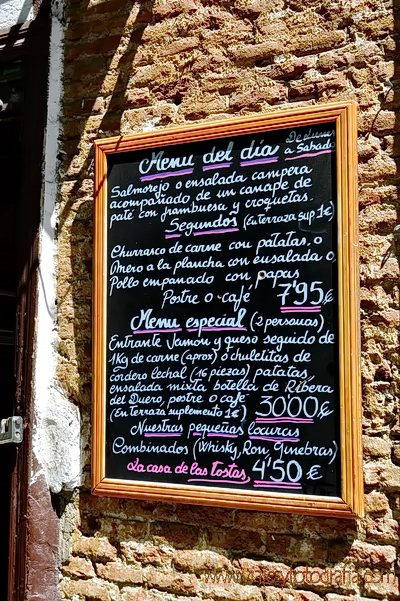 De Lunes
Menu del día a Sabado
Salmorejo o ensalada campera
acompañado de un canape de
paté con frambuesa y croquetas.
Segundos (En terraza sup 1€)
Churrasco de carne con patatas, o
Mero a la plancha con ensalada o,
Pollo empanado con papas
Postre o café 7'95€
Menu especial (2 personas)
Entrante Jamón y queso seguido de
1Kg de carne (aprox) ó chuletitas de
cordero lechal (16 piezas) patatas,
ensalada mixta botella de Ribera
del Duero, postre o café
(En terraza suplemento 1€) 30'00€
Nuestras pequeñas locuras
Combinados (Whisky, Ron, Ginebras)
La casa de las tostas 4'50€